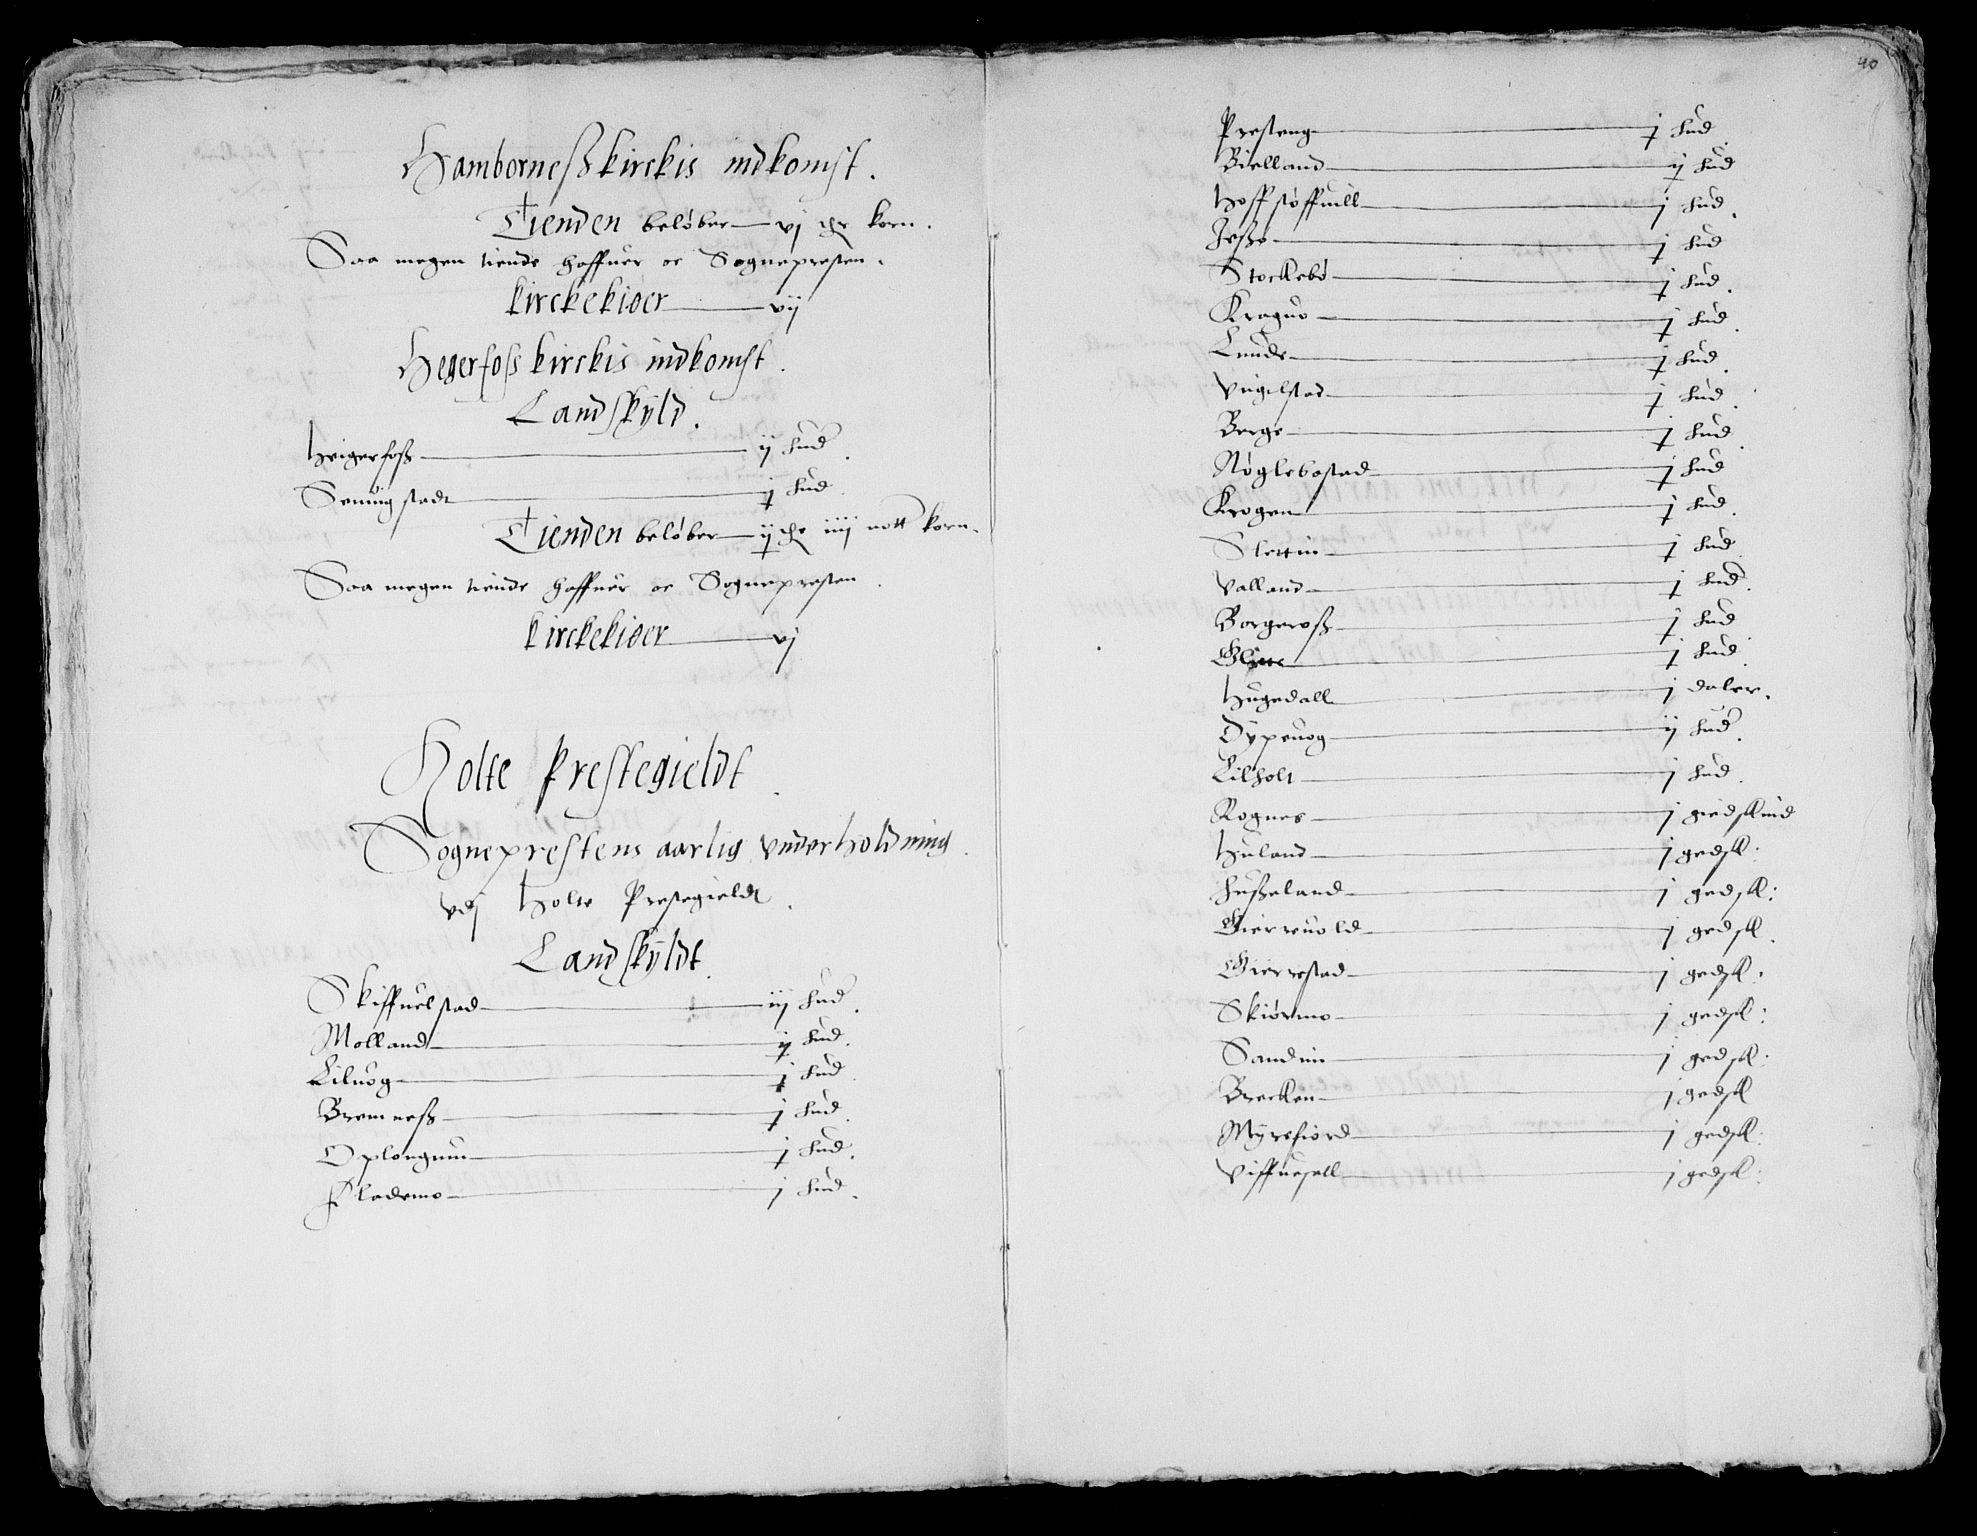 Hamborneßkirckis indkomst.
Tienden beløber vj korn.
Saa megen tiende haffuer oc Sognepresten.
kirckekiøer vij
Hegerfoß kirckis indkomst.
Landskyld.
Heigerfoß ij hud.
Senningstadt j hud.
Tienden beløber ij iiij nott korn.
Saa megen tiende haffuer oc Sognepresten.
kirckekiøer vj
Holte Prestegieldt.
Sogneprestens aarlig vnderholdning.
vdj Holte Prestegieldt.
Landskyldt.
Skiffuelstad iij hud.
Molland ij hud.
Liluog j hud.
Bremneß j hud.
Oplongum j hud.
Flademo j hud.
40
Presteng j hud.
Bielland ij hud
Hoffstøffuill j hud.
Jeßø j hud
Stockebø j hud.
Kraguo j hud.
Lunde j hud.
Vngilstad j hud.
Berge j hud.
Nøglebostad j hud
Krogen j hud.
Slettin j hud.
Valland j hud.
Borgeroß j hud
j hud.
Hugedall j daler.
Dypeuog ij hud.
Lilholt j hud.
Rognes j giedskind
Huland j gedsk:
Hußeland j gedsk:
Gierreuold j gedsk.
Gierrestad j gedsk:
Skiørmo j gedsk:
Sandnn j gedsk:
Brecken j gedsk
Myrefiord j gedsk:
Viffuesall j gedsk: